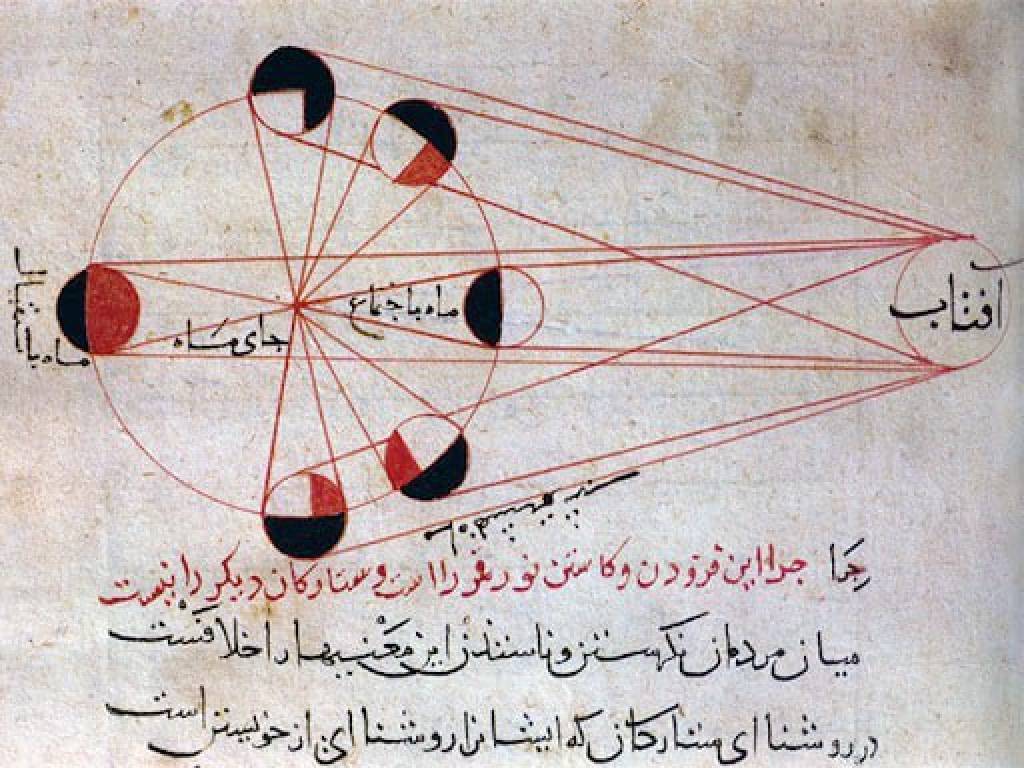 افتاب
ماه باجتماع
جای ماه
ماه باستقبال
چرا چرا این فزودن و کاستن نور قمر راست و ستارکان دیکر را نیست
میان مردمان نکرستن و ناستدن این معنیها را خلافست
در روشنا ای ستارکان که ایشانرا روشنا ای از خویشتن است